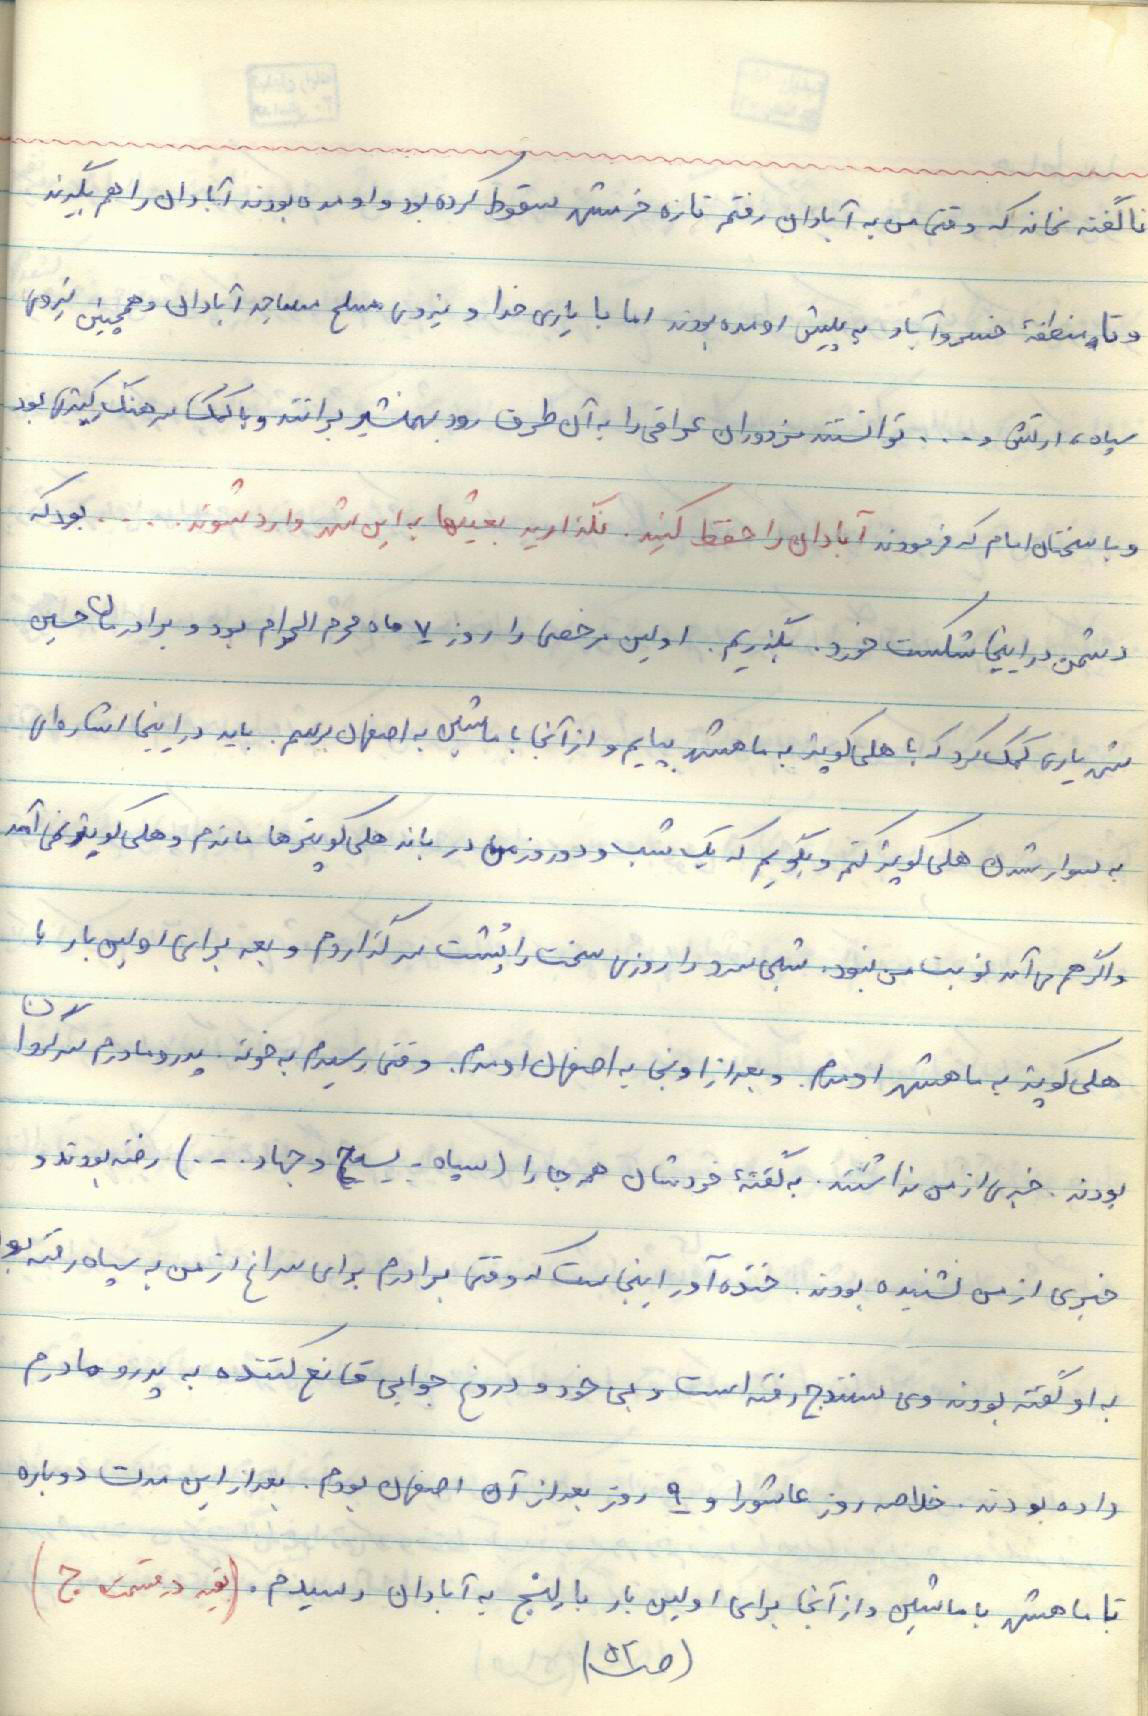 ناگفته نماند که وقتی من به آبادان رفتم تازه خرمشهر سقوط کرده بود و اومده بودند آبادان را هم بگیرند
و تا منطقهٔ خسروآباد به پیش اومده بودند اما با یاری خدا و نیروی مسلح مساجد آبادان و همچنین نیروی
سپاه، ارتش و .... توانستند مزدوران عراقی را به آن طرف رود بهمنشیر برانند و با کمک سرهنگ بود
و با سخنان امام که فرمودند آبادان را حفظ کنید. نگذارید بعثیها به این شهر وارد شوند. .... بود که
دشمن در اینجا شکست خورد. بگذریم. اولین مرخصی را روز ۷ ماه محرم الحرام بود و برادرمان حسین
شهریاری کمک کرد که با هلی کوپتر به ماهشهر بیایم و از آنجا با ماشین به اصفهان برسم. باید در اینجا اشاره‌ای
به سوار شدن هلی کوپتر کنم و بگویم که یک شب و دو روز من در باند هلی کوپترها ماندم و هلی کوپتر نمی آمد
و اگر هم می آمد نوبت من نبود. شبی سرد را روزی سخت را پشت سر گذاردم و بعد برای اولین بار با
هلی کوپتر به ماهشهر اومدم. و بعد از اونجا به اصفهان اومدم. وقتی رسیدم به خونه. پدر و مادرم نگران
بودند. خبری از من نداشتند. به گفتهٔ خودشان همه جا را (سپاه - بسیج و جهاد ...) رفته بودند و
خبری از من نشنیده بودند. خنده آور اینجاست که وقتی برادرم برای سراغ از من به سپاه رفته بود
به او گفته بودند وی سنندج رفته است و بی خود و دروغ جوابی قانع کننده به پدر و مادرم
داده بودند. خلاصه روز عاشورا و ۹ روز بعد از آن اصفهان بودم. بعد از این مدت دوباره
تا ماهشهر با ماشین و از آنجا برای اولین بار با لنج به آبادان رسیدم. (بقیه در قسمت ج)